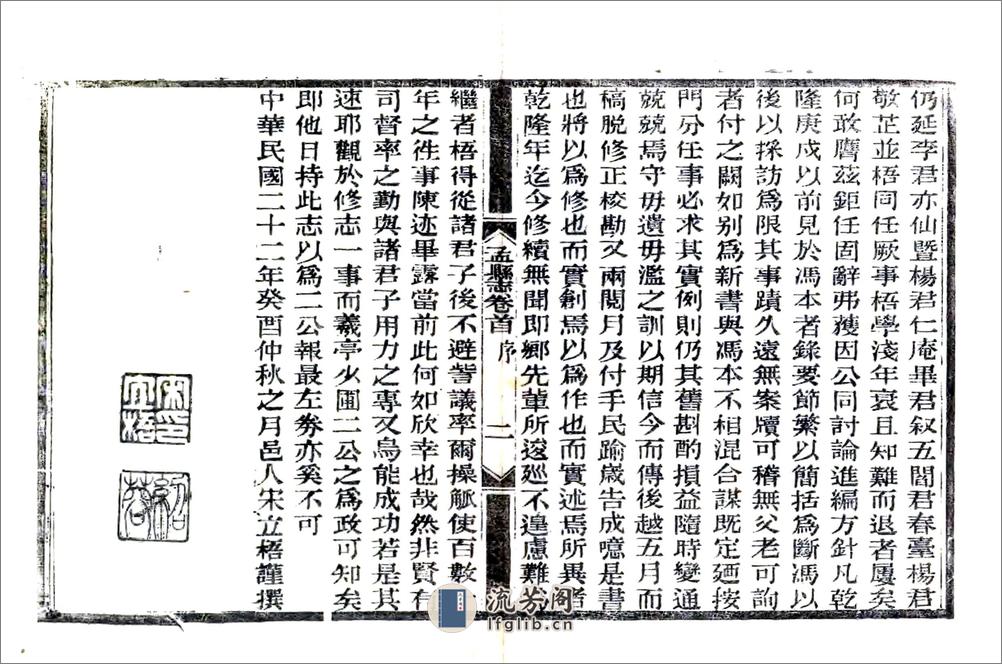 仍延李君亦仙暨楊君仁庵畢君叙五閻君春臺楊君
敬芷並梧同任厥事梧學淺年衰且知難而退者屢矣
何敢膺茲鉅任固辭弗獲因公同討論進編方針凡乾
隆庚戌以前見於馮本者錄要節繁以簡括爲斷馮以
後以採訪爲限其事蹟久遠無案牘可稽無父老可詢
者付之闕如別爲新書與馮本不相混合謀既定廼按
門分任事必求其實例則仍其舊斟酌損益隨時變通
兢兢焉守毋遺毋濫之訓以期信今而傳後越五月而
稿脫修正校勘又兩閱月及付手民踰歲告成噫是書
也將以爲修也而實創焉以爲作也而實述焉所異者
乾隆年迄今修續無聞即鄉先輩所逡巡不遑慮難
孟縣志卷首 序 二
繼者梧得從諸君子後不避訾議率爾操觚使百數
年之徃事陳迹畢露當前此何如欣幸也哉然非賢有
司督率之勤與諸君子用力之專又烏能成功若是其
速耶觀於修志一事而羲亭少圃二公之爲政可知矣
即他日持此志以爲二公報最左券亦奚不可
中華民國二十二年癸酉仲秋之月邑人宋立梧謹撰
宋印立梧
流芳阁
lfglib.cn